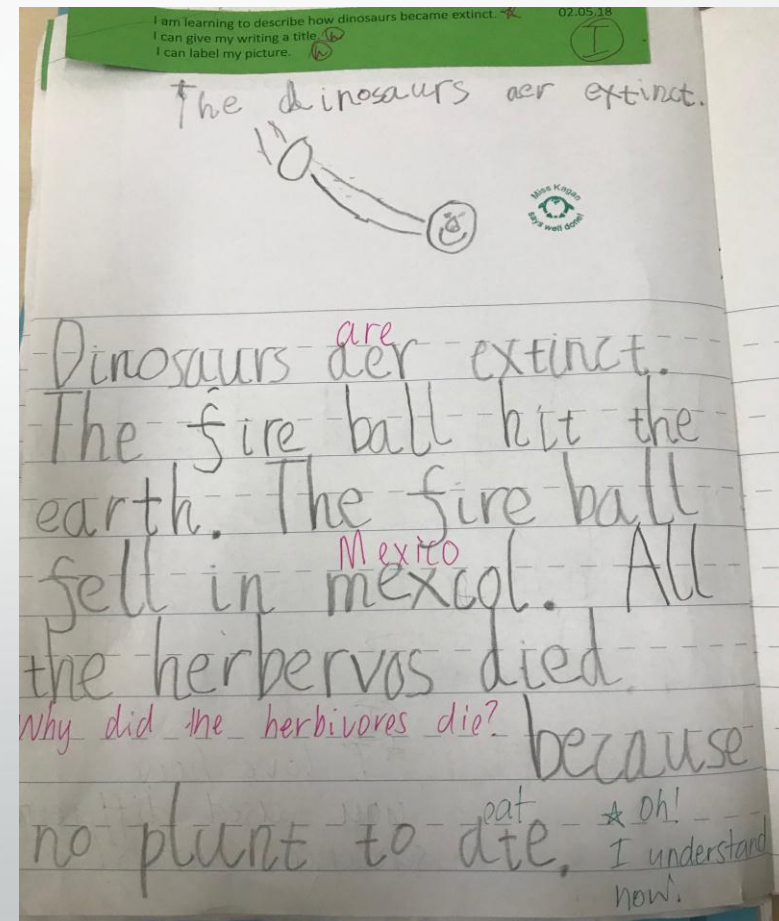 I am learning to describe how dinosaurs became extinct.
02.05.18
I can give my writing a title.
I
I can label my picture.
The dinosaurs aer extinct.
Miss Kagan
says well done!
are
Dinosaurs aer extinct.
The fire ball hit the
earth. The fire ball
Mexico
fell in mexcol. All
the herbervos died
Why did the herbivores die? because
eat
no plunt to ate.
★ Oh!
I understand
now.